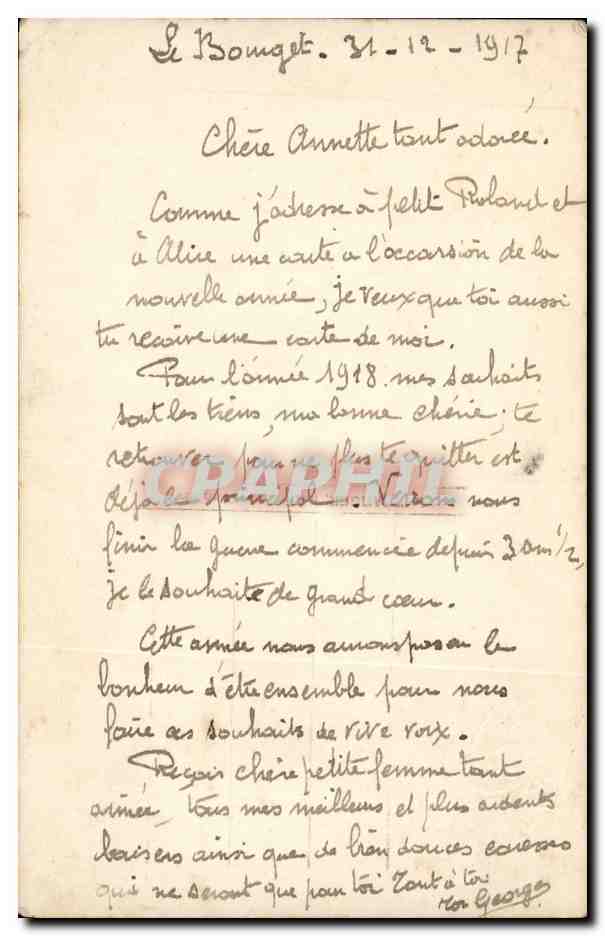 Le Bourget - 31 - 12 - 1917
Chère Annette tant adorée.
Comme j'adresse à petit Roland et
à Alice une carte a l'occassion de la
nouvelle année, je veux que toi aussi
tu reçoive une carte de moi.
Pour l'année 1918 mes souhaits
sont les tiens, ma bonne chérie; te
retrouver pour ne plus te quitter est
déja le principal. Verrons nous
finir la guerre commencée depuis 3 ans 1/2,
je le souhaite de grand cœur.
Cette année nous aurons pas eu le
bonheur d'être ensemble pour nous
faire ces souhaits de vive voix.
Reçois chère petite femme tant
aimée, tous mes meilleurs et plus ardents
baisers ainsi que de bien douces caresses
qui ne seront que pour toi Tout à toi
Ton Georges
CPAPHIL